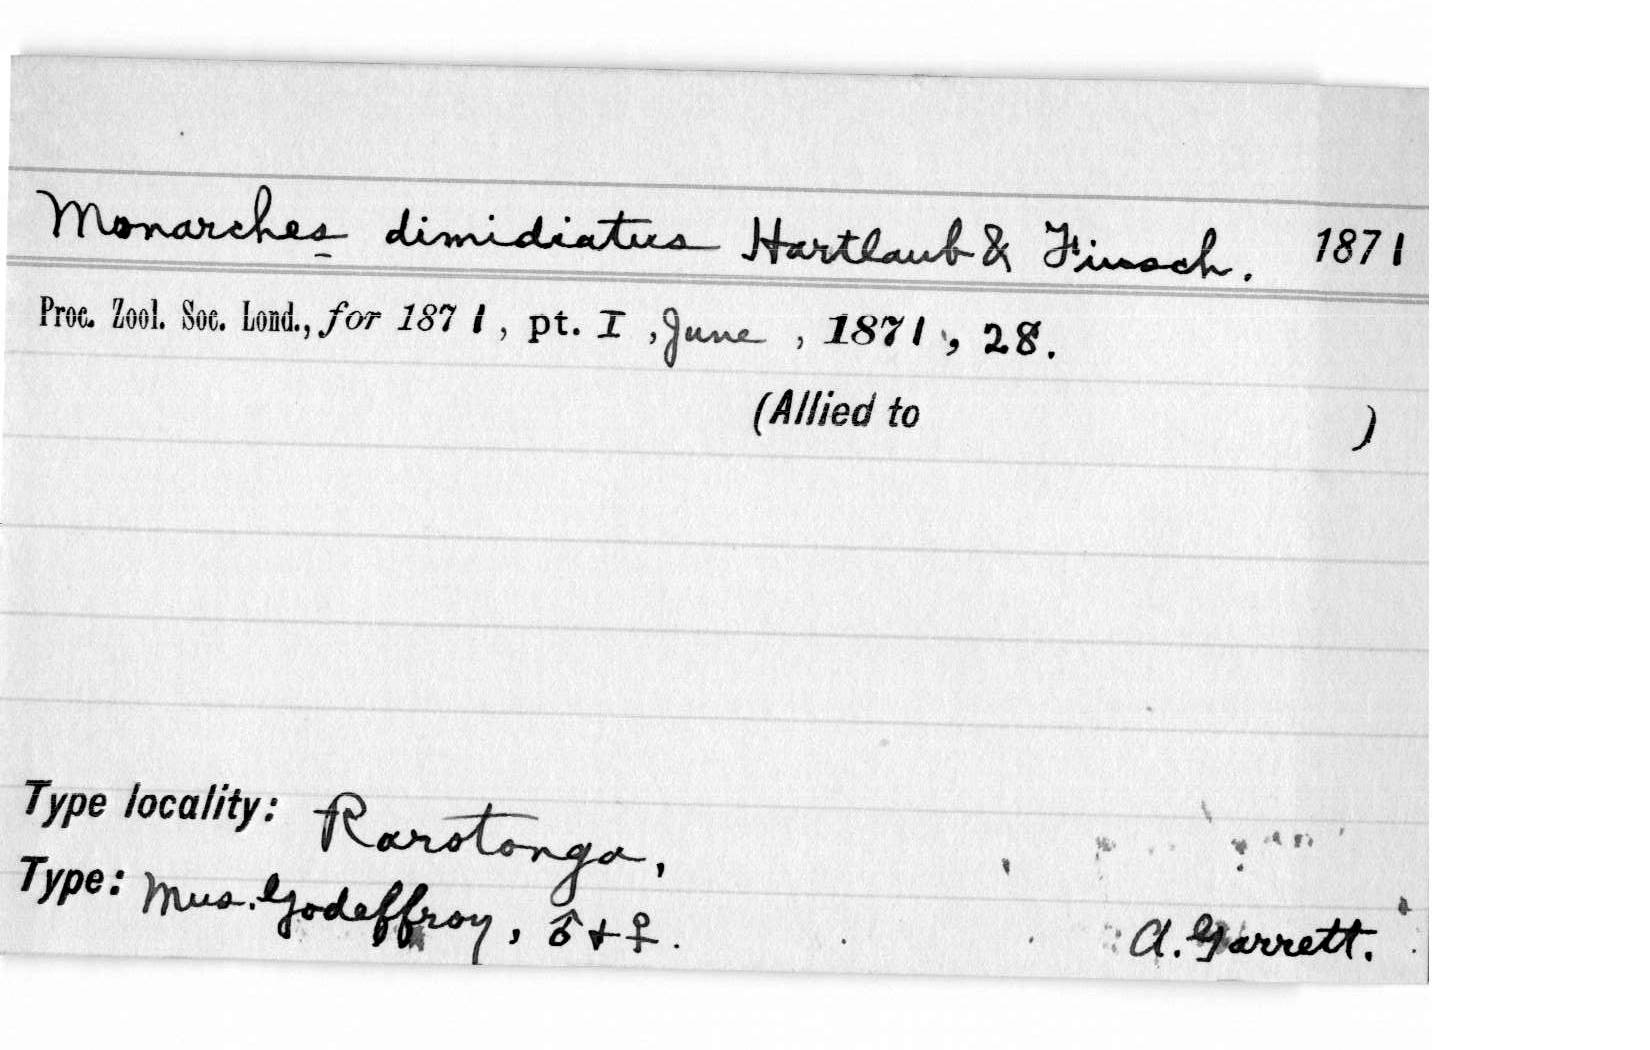 Monarches dimidiatus Hartlaub & Finsch. 1871
Proc. Zool. Soc. Lond., for 1871, pt. I, June, 1871, 28.
(Allied to )
Type locality: Rarotonga,
Type: Mus. Godeffroy, ♂ + ♀. A. Garrett.